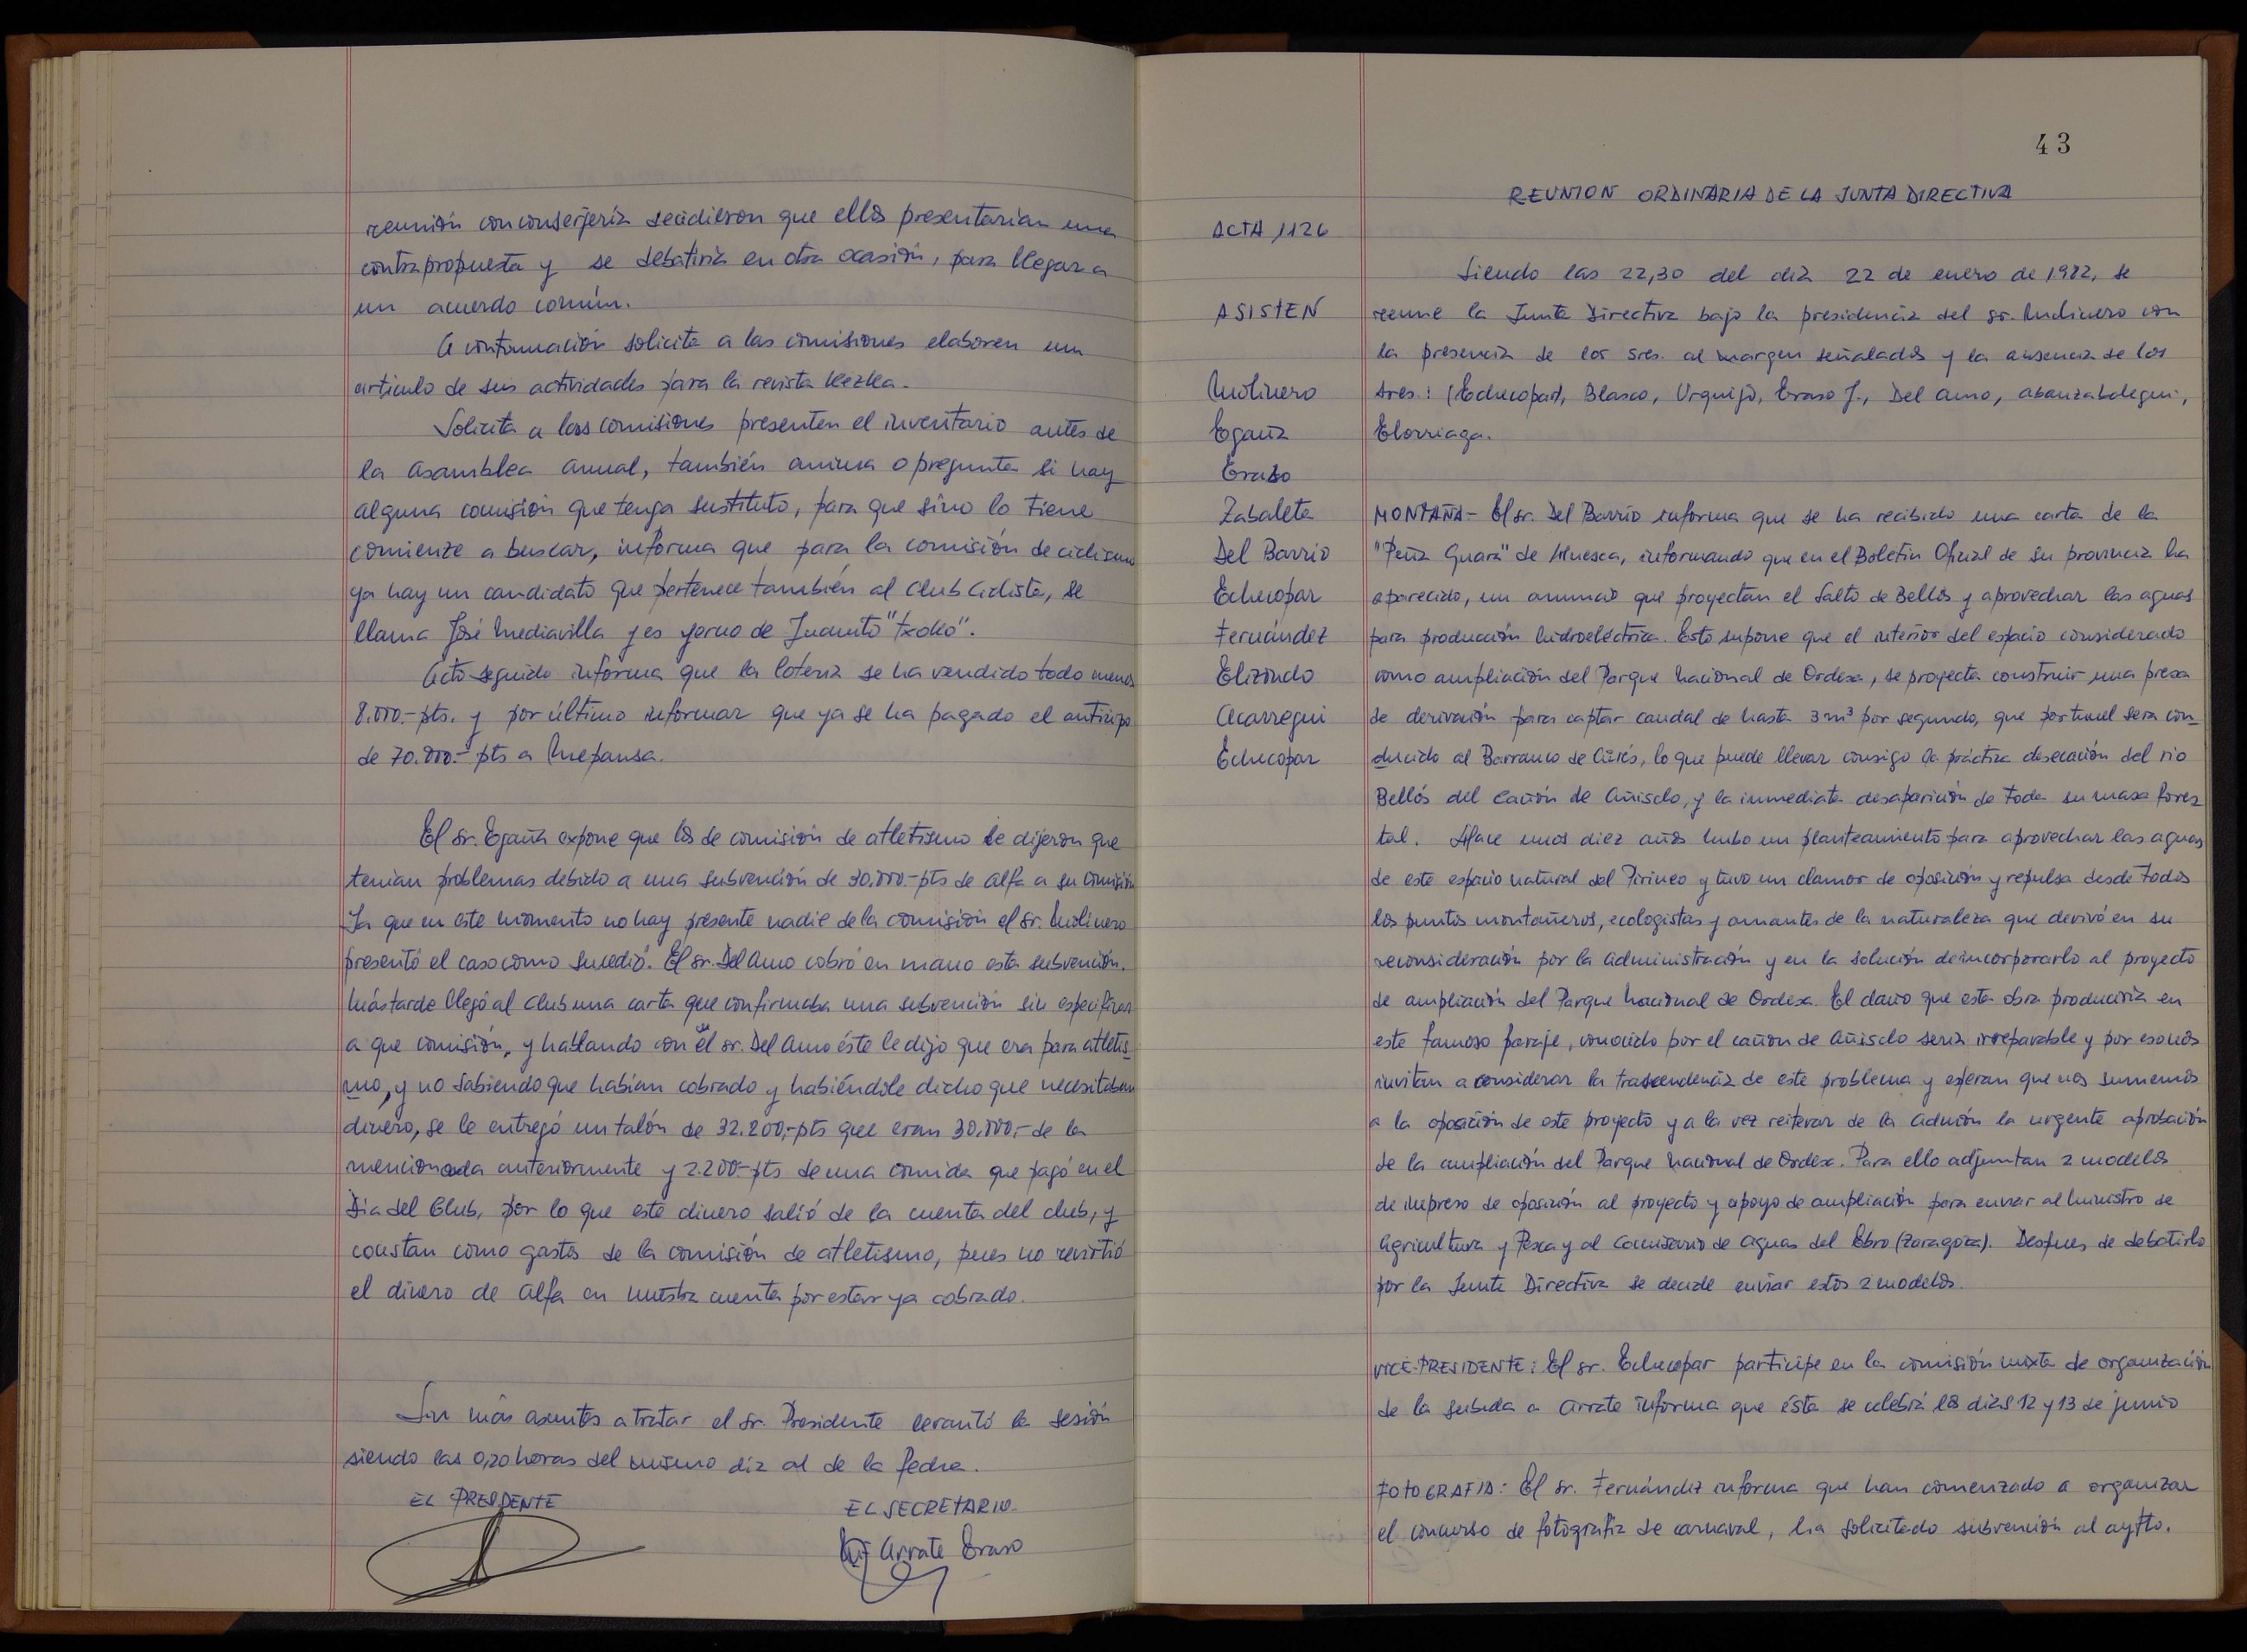 reunión con conserjería decidieron que ellos presentarían una
contrapropuesta y se debatiría en otra ocasión, para llegar a
un acuerdo común.
A continuación solicita a las comisiones elaboren un
artículo de sus actividades para la revista Kezka.
Solicita a las comisiones presenten el inventario antes de
la Asamblea Anual, también anima o pregunta si hay
alguna comisión que tenga sustituto, para que sino lo tiene
comience a buscar, informa que para la comisión de ciclismo
ya hay un candidato que pertenece también al Club Ciclista, se
llama José Mediavilla y es yerno de Juanito "Txoko".
Acto seguido informa que la lotería se ha vendido todo menos
8.000.- pts. y por último informar que ya se ha pagado el anticipo
de 70.000.- pts a Mepansa.
El sr. Egaña expone que los de comisión de atletismo le dijeron que
tenían problemas debido a una subvención de 30.000.- pts de Alfa a su comisión
Ya que en este momento no hay presente nadie de la comisión el sr. Molinero
presentó el caso como sucedió. El sr. Del Amo cobró en mano esta subvención.
Más tarde llegó al Club una carta que confirmaba una subvención sin especificar
a que comisión, y hablando con el sr. Del Amo éste le dijo que era para atletis_
mo, y no sabiendo que habían cobrado y habiéndole dicho que necesitaban
dinero, se le entregó un talón de 32.200,- pts que eran 30.000,- de la
mencionada anteriormente y 2.200.- pts de una comida que pagó en el
Día del Club, por lo que este dinero salió de la cuenta del club, y
constan como gastos de la comisión de atletismo, pues no revirtió
el dinero de Alfa en nuestra cuenta por estar ya cobrado.
Sin más asuntos a tratar el Sr. Presidente levantó la sesión
siendo las 0,20 horas del mismo día al de la fecha.
EL PRESIDENTE
EL SECRETARIO
Arrate Eraso
43
REUNION ORDINARIA DE LA JUNTA DIRECTIVA
ACTA 1126
Siendo las 22,30 del día 22 de enero de 1982, se
ASISTEN
reune la Junta Directiva bajo la presidencia del sr. Molinero con
la presencia de los sres. al margen señalados y la ausencia de los
Molinero
sres.: (Echecopar), Blasco, Urquijo, Eraso J., Del Amo, Abanzabalegui,
Egaña
Elorriaga.
Eraso
Zabaleta
MONTAÑA- El sr. Del Barrio informa que se ha recibido una carta de la
Del Barrio
"Peña Guara" de Huesca, informando que en el Boletín Oficial de su provincia ha
Echecopar
aparecido, un anuncio que proyectan el Salto de Bellos y aprovechar las aguas
Fernández
para producción hidroeléctrica. Esto supone que el interior del espacio considerado
Elizondo
como ampliación del Parque Nacional de Ordesa, se proyecta construir una presa
Acarregui
de derivación para captar caudal de hasta 3 m³ por segundo, que por tunel sera con_
Echecopar
ducido al Barranco de Airés, lo que puede llevar consigo la práctica desecación del rio
Bellós del Cañón de Añisclo, y la inmediata desaparición de toda su masa fores
tal. Hace unos diez años hubo un planteamiento para aprovechar las aguas
de este espacio natural del Pirineo y tuvo un clamor de oposición y repulsa desde todos
los puntos montañeros, ecologistas y amantes de la naturaleza que derivó en su
reconsideración por la Administración y en la solución de incorporarlo al proyecto
de ampliación del Parque Nacional de Ordesa. El daño que esta obra produciría en
este famoso paraje, conocido por el cañon de Añisclo sería irreparable y por eso nos
invitan a considerar la trascendencia de este problema y esperan que nos sumemos
a la oposición de este proyecto y a la vez reiterar de la Admón la urgente aprobación
de la ampliación del Parque Nacional de Ordesa. Para ello adjuntan 2 modelos
de impreso de oposición al proyecto y apoyo de ampliación para enviar al Ministro de
Agricultura y Pesca y al Comisario de Aguas del Ebro (Zaragoza). Despues de debatirlo
por la Junta Directiva se decide enviar estos 2 modelos.
VICE-PRESIDENTE: El sr. Echecopar participe en la comisión mixta de organización
de la subida a Arrate informa que ésta se celebrá los días 12 y 13 de junio
FOTOGRAFIA: El sr. Fernández informa que han comenzado a organizar
el concurso de fotografía de carnaval, ha solicitado subvención al aytto.